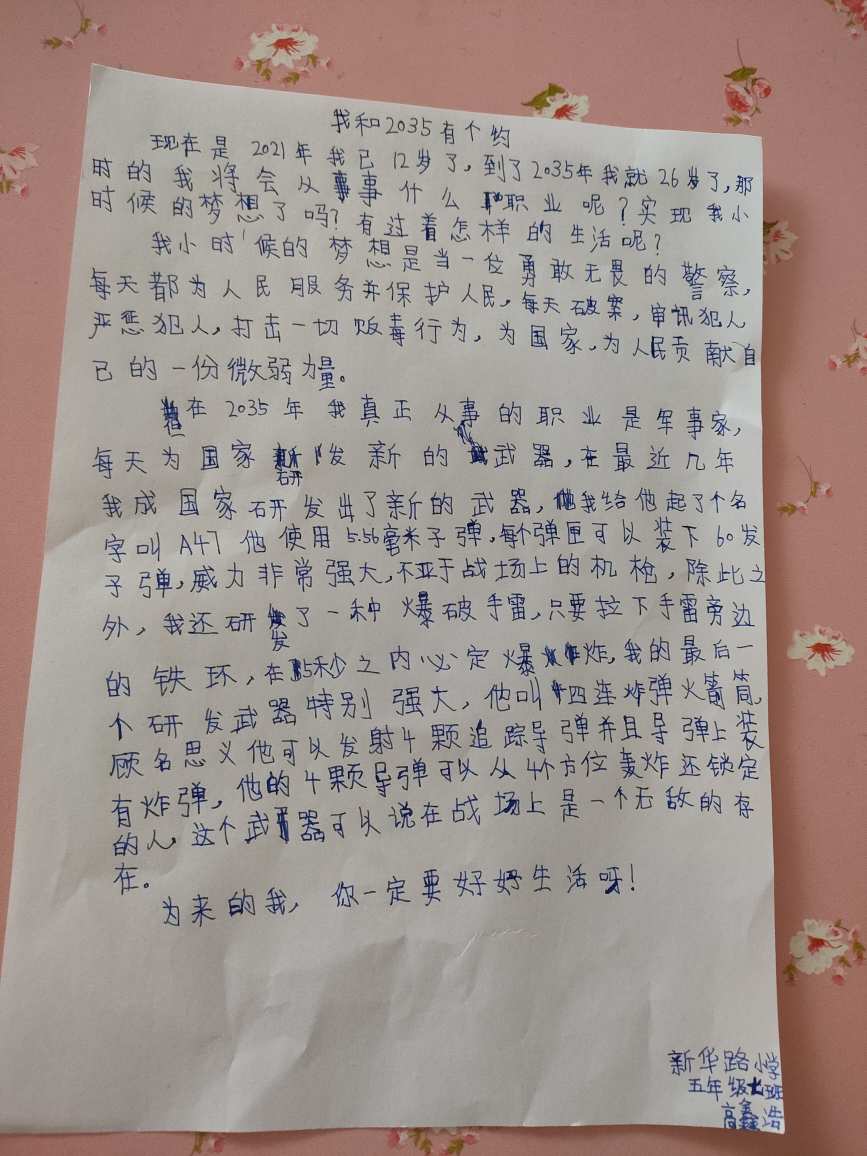 我和2035有个约
现在是2021年我已12岁了，到了2035年我就26岁了，那
时的我将会从事什么职业呢？实现我小
时候的梦想了吗？有过着怎样的生活呢？
我小时候的梦想是当一位勇敢无畏的警察，
每天都为人民服务并保护人民，每天破案，审讯犯人
严惩犯人，打击一切贩毒行为，为国家，为人民贡献自
己的一份微弱力量。
在2035年我真正从事的职业是军事家，
每天为国家研发新的武器，在最近几年
我成国家研发出了新的武器，我给他起了个名
字叫A47他使用5.56毫米子弹，每个弹匣可以装下60发
子弹，威力非常强大，不亚于战场上的机枪，除此之
外，我还研发了一种爆破手雷，只要拉下手雷旁边
的铁环，在5秒之内必定爆炸，我的最后一
个研发武器特别强大，他叫四连炸弹火箭筒，
顾名思义他可以发射4颗追踪导弹并且导弹上装
有炸弹，他的4颗导弹可以从4个方位轰炸还锁定
的人，这个武器可以说在战场上是一个无敌的存
在。
为来的我，你一定要好好生活呀！
新华路小学
五年级七班
高鑫浩